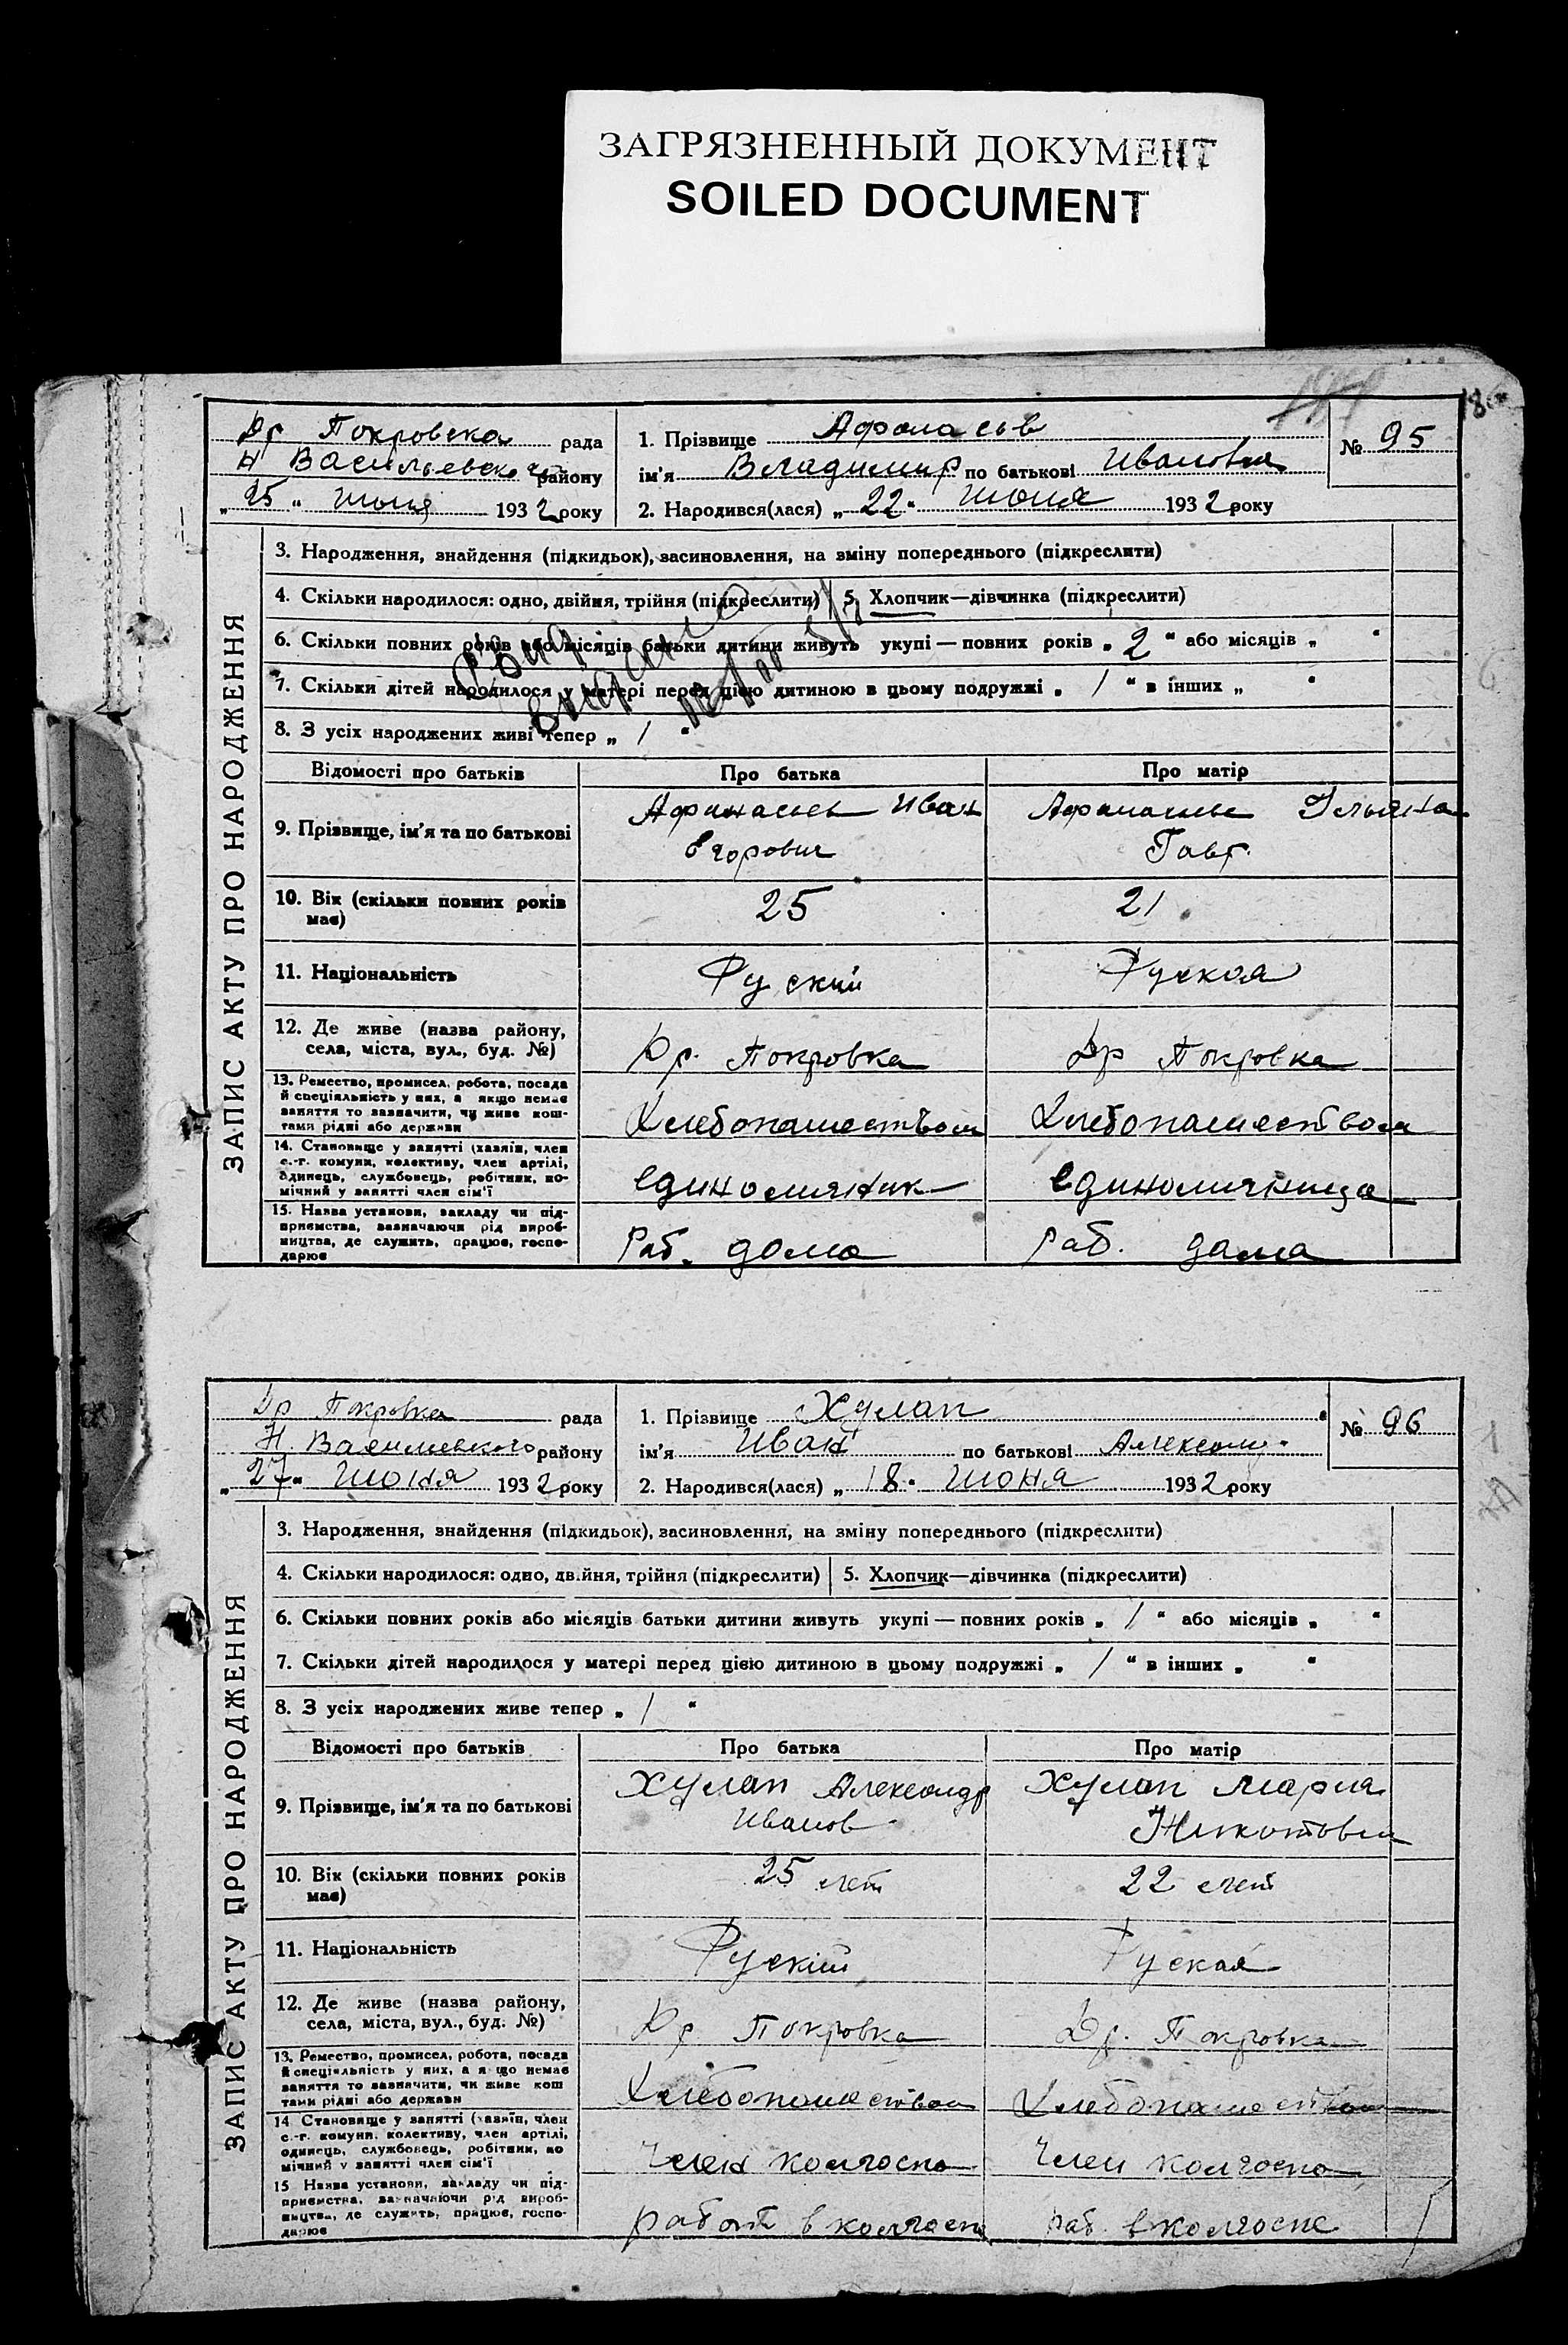 ЗАГРЯЗНЕННЫЙ ДОКУМЕНТ
SOILED DOCUMENT
Др Покровска рада
Н Васильевского району
„25" июня 1932 року
1. Прізвище Афонасьв
ім'я Владимир по батькові Иванович
2. Народився(лася) „22" июня 1932 року
№ 95
ЗАПИС АКТУ ПРО НАРОДЖЕННЯ
3. Народження, знайдення (підкидьок), засиновлення, на зміну попереднього (підкреслити)
4. Скільки народилося: одно, двійня, трійня (підкреслити) 5. Хлопчик—дівчинка (підкреслити)
6. Скільки повних років або місяців батьки дитини живуть укупі — повних років „2" або місяців „ "
7. Скільки дітей народилося у матері перед цією дитиною в цьому подружжі „ 1 " в інших „ "
8. З усіх народжених живі тепер „ 1 "
Відомості про батьків Про батька Про матір
9. Прізвище, ім'я та по батькові
Афанасьев Иван
Егорович
Ульяна
Гавр.
10. Вік (скільки повних років має) 25 21
11. Національність Руский Руская
12. Де живе (назва району, села, міста, вул., буд. №) Др. Покровка Др Покровка
13. Ремество, промисел, робота, посада й спеціяльність у них, а якщо немає заняття то зазначити, чи живе коштами рідні або держави
Хлебопашеством Хлебопашеством
14. Становище у занятті (хазяїн, член с.-г. комуни, колективу, член артілі, одинець, службовець, робітник, помічний у занятті член сім'ї
единоличник единоличница
15. Назва установи, закладу чи підприємства, зазначаючи рід виробництва, де служить, працює, господарює
Раб. дома раб. дама
Др Покровка рада
Н Васильевского району
„27" июня 1932 року
1. Прізвище Хулап
ім'я Иван по батькові Александ.
2. Народився(лася) „18" июня 1932 року
№ 96
ЗАПИС АКТУ ПРО НАРОДЖЕННЯ
3. Народження, знайдення (підкидьок), засиновлення, на зміну попереднього (підкреслити)
4. Скільки народилося: одно, двійня, трійня (підкреслити) 5. Хлопчик—дівчинка (підкреслити)
6. Скільки повних років або місяців батьки дитини живуть укупі — повних років „ 1 " або місяців „ "
7. Скільки дітей народилося у матері перед цією дитиною в цьому подружжі „ 1 " в інших „ "
8. З усіх народжених живе тепер „ 1 "
Відомості про батьків Про батька Про матір
9. Прізвище, ім'я та по батькові
Хулап Александр
Иванов
Хулап Мария
10. Вік (скільки повних років має) 25 лет 22 лет
11. Національність Руский Руская
12. Де живе (назва району, села, міста, вул., буд. №) Др Покровка Др. Покровка
13. Ремество, промисел, робота, посада й спеціяльність у них, а якщо немає заняття то зазначити, чи живе коштами рідні або держави
Хлебопашеством Хлебопашеством
14. Становище у занятті (хазяїн, член с.-г. комуни, колективу, член артілі, одинець, службовець, робітник, помічний у занятті член сім'ї
Член колгоспа Член колгоспа
15. Назва установи, закладу чи підприємства, зазначаючи рід виробництва, де служить, працює, господарює
работ в колгосп раб. в колгоспе